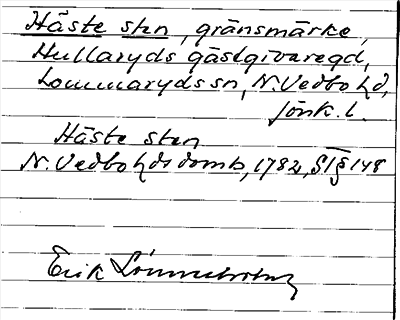 Häste sten, gränsmärke,
Hullaryds gästgivaregd,
Lommaryds sn, N. Vedbo hd,
Jönk. l.
Häste sten
N. Vedbo hds domb, 1782, § 148
Erik